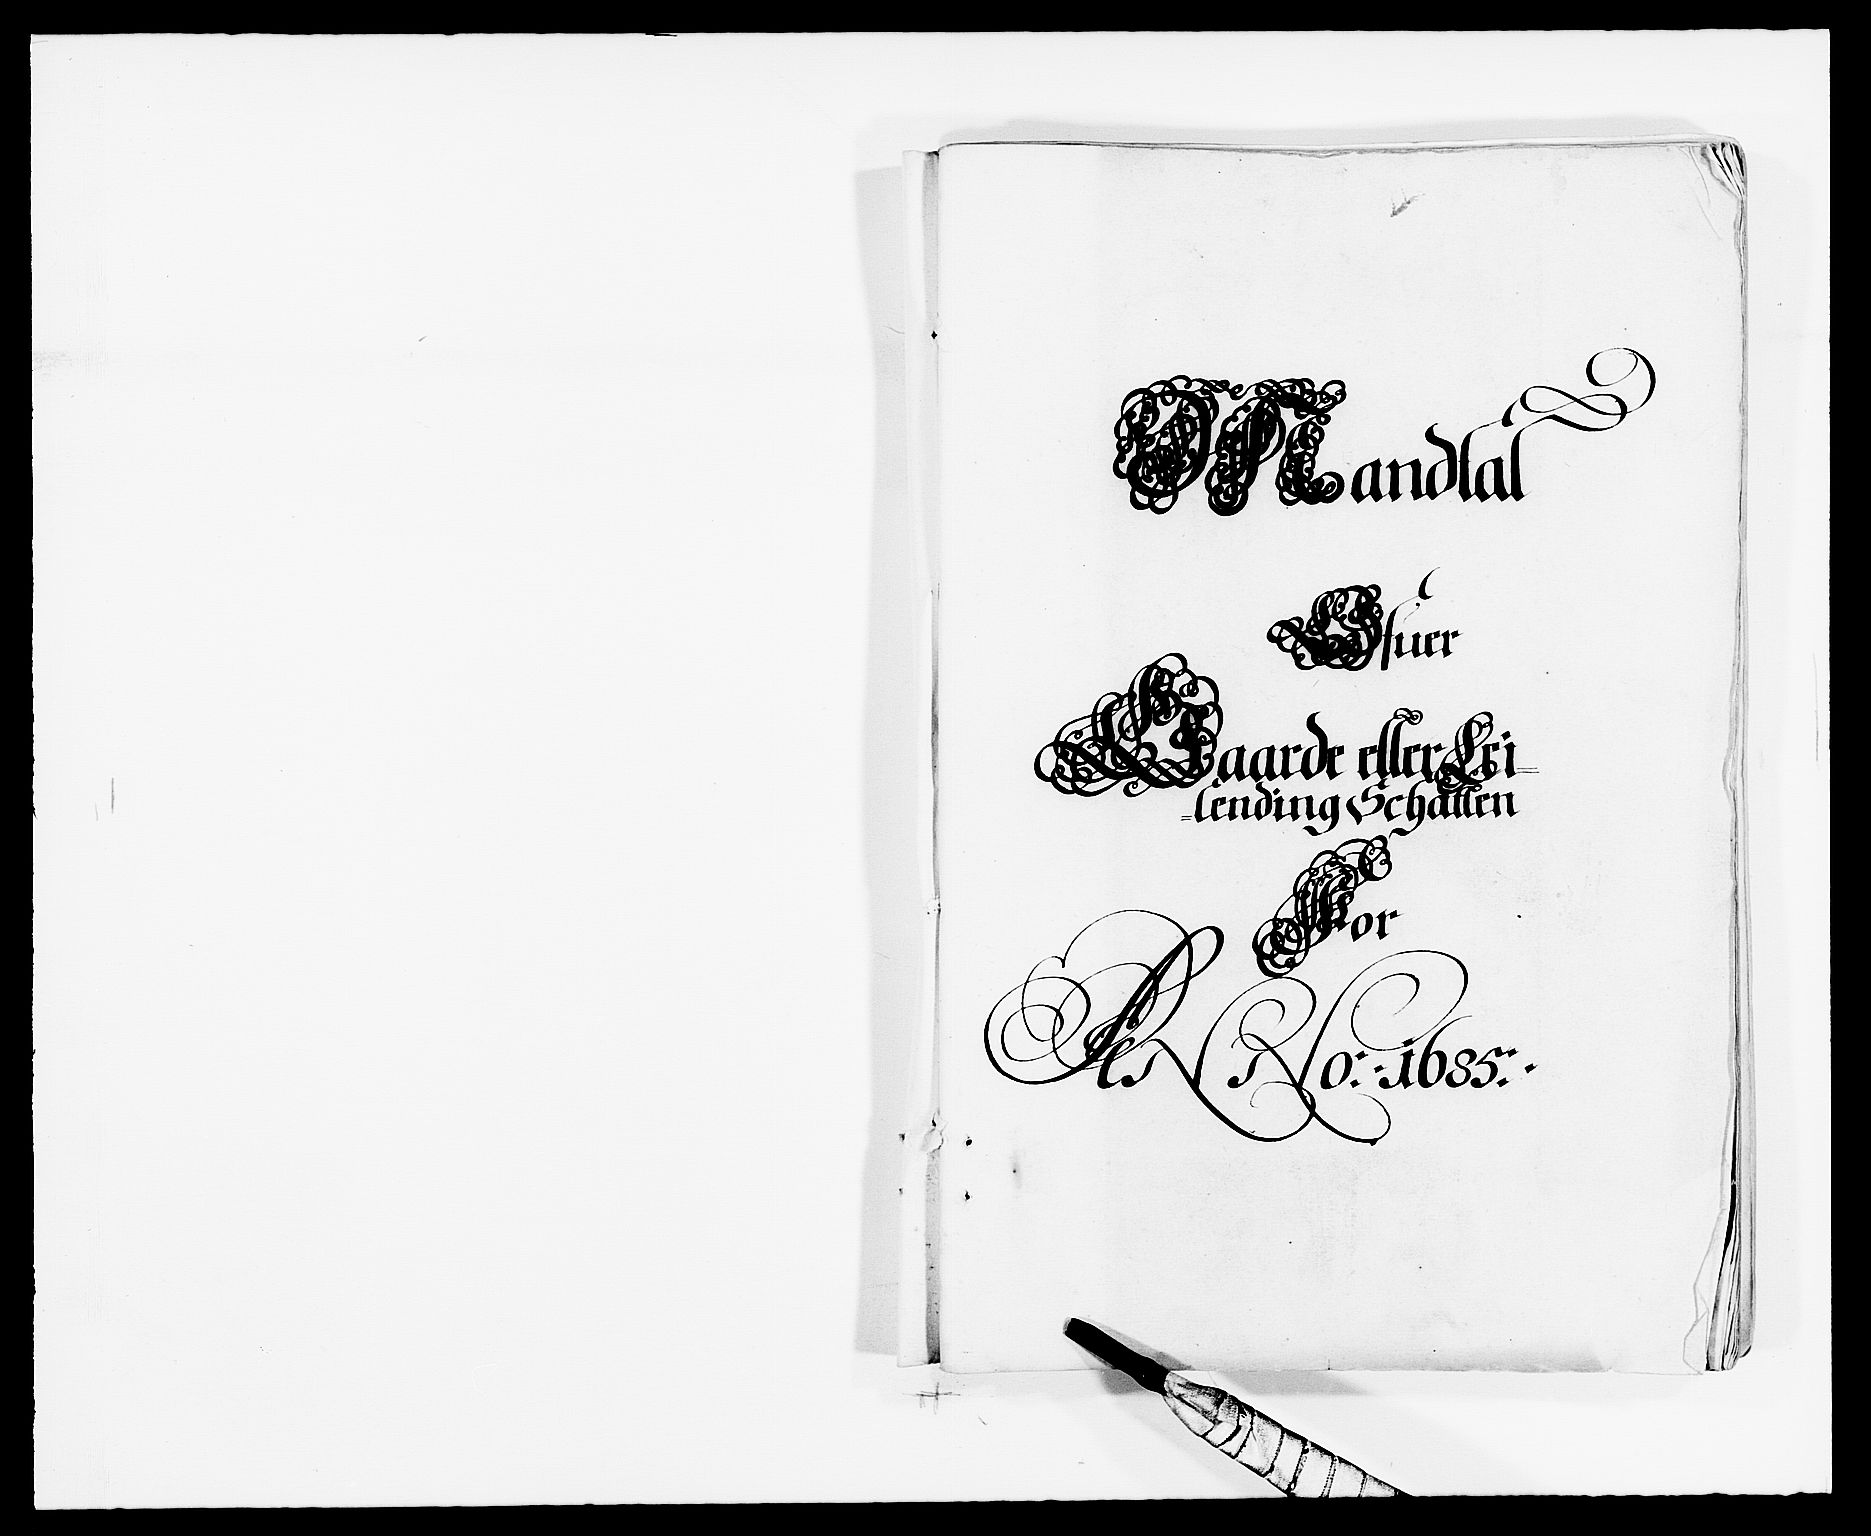 Mandtal
Ofuer
Gaarde eller Lei=
=lending Schatten
For
ANNo: 1685: